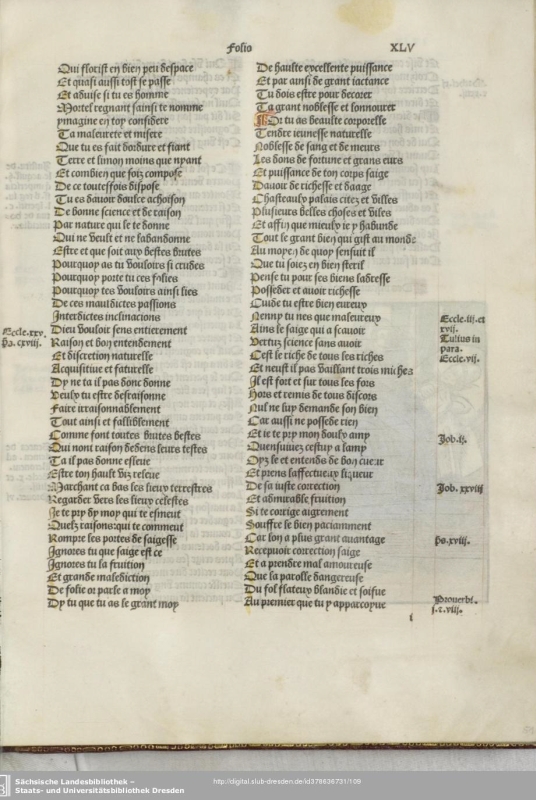 Folio XLV
Qui florist en bien peu despace
Et quasi aussi tost se passe
Et aduise si tu es homme
Mortel regnant sainsi te nomme
ymagine en toy considere
Ta maleurete et misere
Que tu es fait dordure et fiant
Terre et limon moins que nyant
Et combien que soiz compose
De ce toutesfois dispose
Tu es dauoir doulce achoison
De bonne science et de raison
Par nature qui le te donne
Qui ne veult et ne labandonne
Estre et que soit aux bestes brutes
Pourquoy as tu vouloirs si crudes
Pourquoy porte tu ces folies
Pourquoy tes vouloirs ainsi lies
De ces mauldictes passions
Interdictes inclinacions
Dieu vouloir sens entierement
Raison et bon entendement
Et discretion naturelle
Acquisitiue et fatuelle
Dy ne ta il pas donc donne
Veulx tu estre desraisonne
Faire irraisonnablement
Tout ainsi et falliblement
Comme font toutes brutes bestes
Qui nont raison dedens leurs testes
Ta il pas donne esleue
Estre ton hault viz releue
Marchant ca bas les lieux terrestres
Regarder vers les lieux celestes
Je te pry dy moy qui te esmeut
Quelz raisons: qui te commeut
Rompre les portes de saigesse
Ignores tu que saige est ce
Ignores tu la fruition
Et grande malediction
De folie or parle a moy
Dy tu que tu as le grant moy
Eccle.xxv.
ps. cxviij.
De haulte excellente puissance
Et par ainsi de grant iactance
Tu dois estre pour decorer
Ta grant noblesse et honnourer
Or tu as beaulte corporelle
Tendre ieunesse naturelle
Noblesse de sang et de meurs
Les bons de fortune et grans eurs
Et puissance de ton corps saige
Dauoir de richesse et daage
Chasteaulx palais citez et villes
Plusieurs belles choses et viles
Et affin que mieulx ie y habunde
Tout le grant bien qui gist au monde
Au moyen de quoy sensuit il
Que tu soiez en bien steril
Pense tu pour ses biens ladresse
Posseder et auoir richesse
Cuide tu estre bien eureux
Nenny tu nes que maleureux
Ains le saige qui a scauoir
Vertuz science sans auoir
Cest le riche de tous les riches
Et neust il pas vaillant trois miches
Il est fort et sur tous les fors
Hors et remis de tous discors
Nul ne luy demande son bien
Car aussi ne possede rien
Et ie te pry mon doulx amy
Quensuiuez cestuy a lamy
Oyz le et entends de bon cueur
Et prens laffectueux liqueur
De sa iuste correction
Et admirable fruition
Si te corrige aigrement
Souffre le bien paciamment
Car lon a plus grant auantage
Recepuoir correction saige
Et a prendre mal amoureuse
Que la parolle dangereuse
Du fol flateux blandie et soifue
Au premier que tu y apparcoyue
Eccle.iij.et
xvij.
Tulius in
para.
Eccle.vij.
Job.ij.
Job. xxviij
ps.xviij.
Prouerbi.
i
Sächsische Landesbibliothek –
Staats- und Universitätsbibliothek Dresden
http://digital.slub-dresden.de/id378636731/109